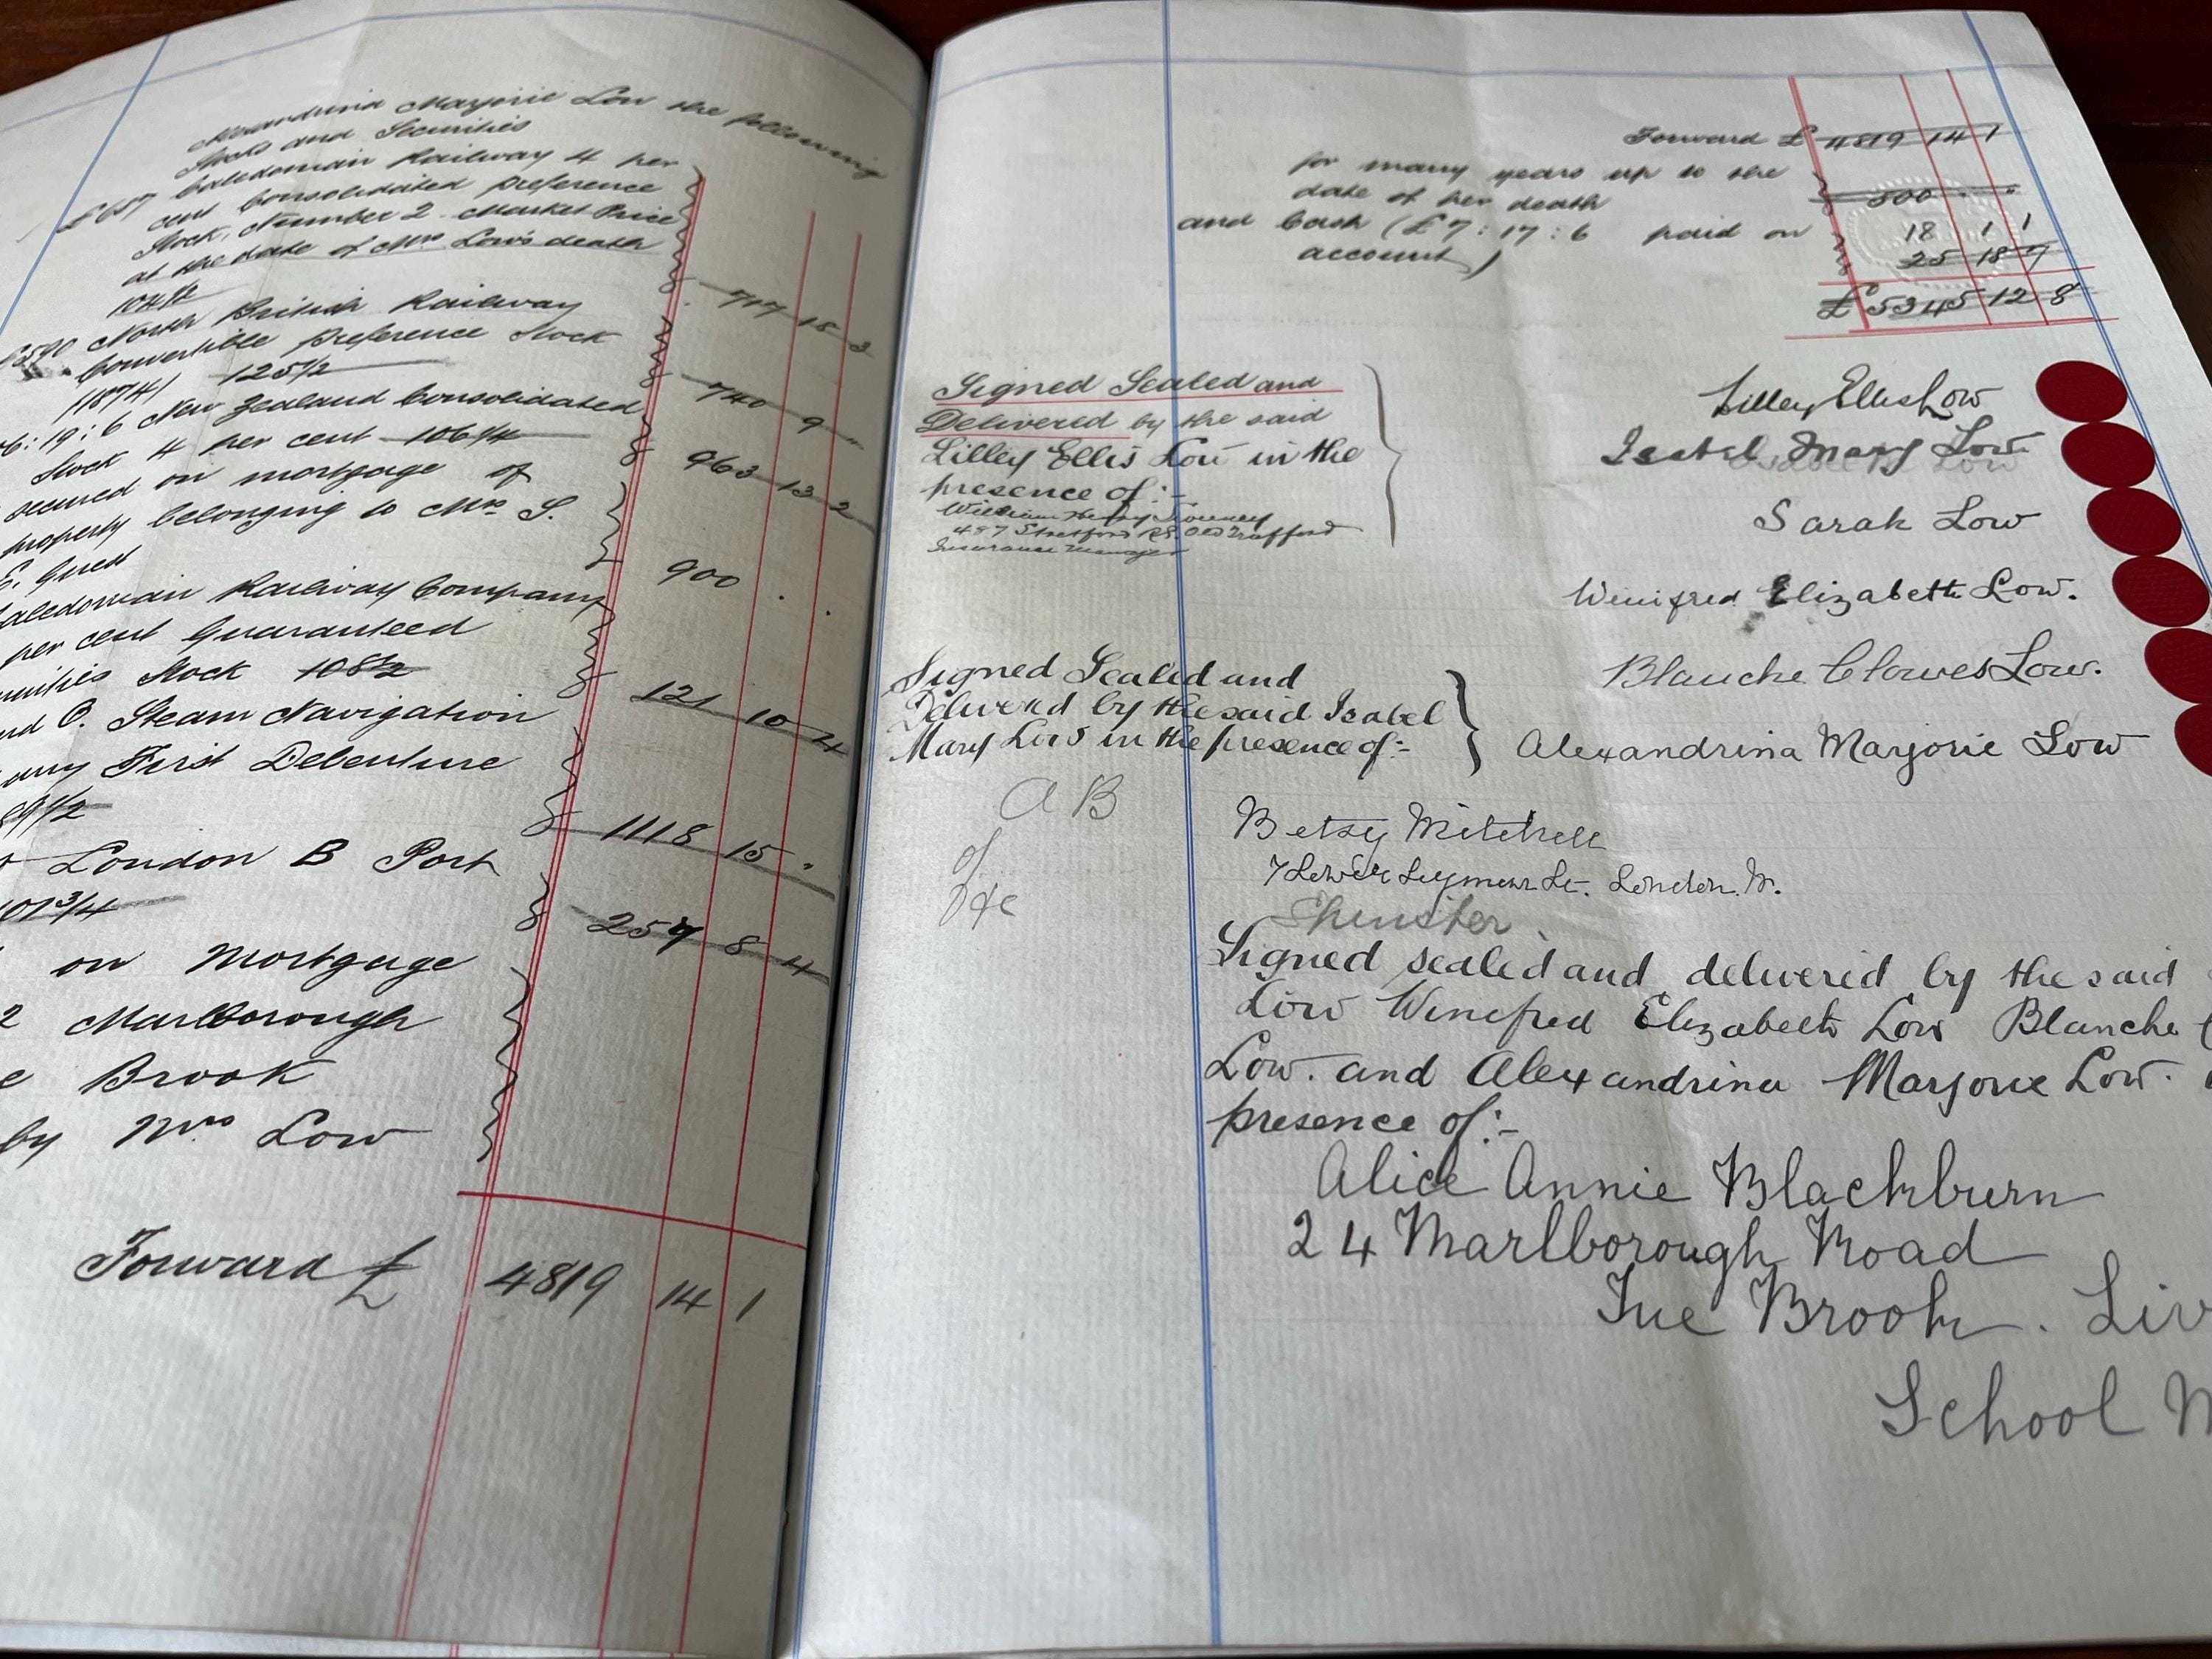 Alexandrina Marjorie Low the following
Stocks and Securities
£687 Caledonian Railway 4 per
cent Consolidated preference
Stock, Number 2. Market Price
at the date of Mrs Low's death
104½
717 18 3
£590 North British Railway
Convertible preference Stock
(1874) 125½
740 9 "
6:19:6 New Zealand Consolidated
Stock 4 per cent 106¼
963 13 2
secured on mortgage of
property belonging to Mrs S.
E. Guest
900 . .
Caledonian Railway Company
per cent Guaranteed
Annuities Stock 108½
121 10 4
and O. Steam Navigation
any First Debenture
89½
1118 15 "
London B Port
101¾
257 8 4
on Mortgage
2 Marlborough
e Brook
by Mrs Low
Forward £ 4819 14 1
Forward £ 4819 14 1
for many years up to the
date of her death
500 . .
and Cash (£7:17:6 paid on
account)
18 1 1
25 18 7
£5345 12 8
Signed Sealed and
Delivered by the said
Lilley Ellis Low in the
presence of:-
William Henry
487 Stretford Rd. Old Trafford
Insurance Manager
Lilley Ellis Low
Isabel Mary Low
Sarah Low
Winifred Elizabeth Low.
Blanche Clowes Low.
Alexandrina Marjorie Low
Signed Sealed and
Delivered by the said Isabel
Mary Low in the presence of:-
A B
of
&c
Betsy Mitchell
7 Lower Seymour St. London. W.
Spinster
Signed sealed and delivered by the said
Low Winifred Elizabeth Low Blanche C
Low. and Alexandrina Marjorie Low.
presence of:-
Alice Annie Blackburn
24 Marlborough Road
Tue Brook. Liv
School M